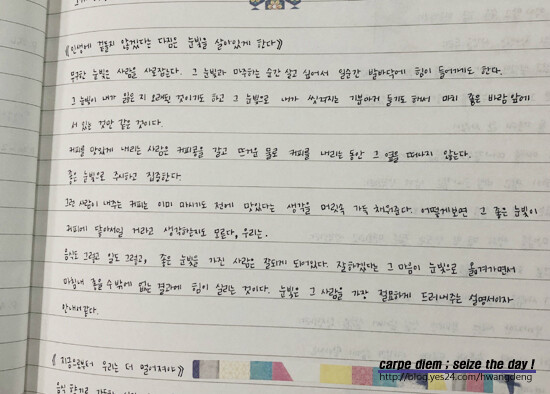 《인생에 겉돌지 않겠다는 다짐은 눈빛을 살아있게 한다》
무구한 눈빛은 사람을 사로잡는다. 그 눈빛과 마주하는 순간 살고 싶어서 일순간 발바닥에 힘이 들어가게도 한다.
그 눈빛이 내가 잃은 지 오래된 것이기도 하고 그 눈빛으로 내가 씻겨지는 기분마저 들기도 해서 마치 좋은 바람 앞에
서 있는 것만 같은 것이다.
커피를 맛있게 내리는 사람은 커피콩을 갈고 뜨거운 물로 커피를 내리는 동안 그 옆을 떠나지 않는다.
좋은 눈빛으로 주시하고 집중한다.
그런 사람이 내주는 커피는 이미 마시기도 전에 맛있다는 생각을 머릿속 가득 채워준다. 어떻게보면 그 좋은 눈빛이
커피에 닿아서일 거라고 생각할런지도 모른다, 우리는.
음식도 그렇고 일도 그렇고, 좋은 눈빛을 가진 사람은 잘되게 되어있다. 잘하겠다는 그 마음이 눈빛으로 옮겨가면서
마침내 좋을 수밖에 없는 결과에 힘이 실리는 것이다. 눈빛은 그 사람을 가장 절묘하게 드러내주는 설명서이자
안내서같다.
《지금으로부터 우리는 더 멀어져야》
carpe diem ; seize the day !
http://blog.yes24.com/hwangdeng